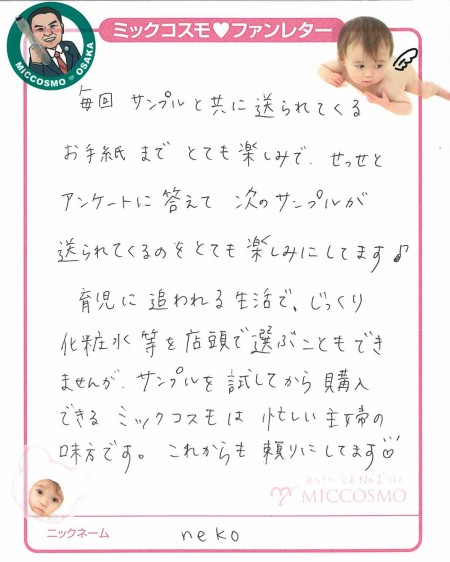 ミックコスモ♥ファンレター
MICCOSMO ♥ OSAKA
毎回 サンプルと共に送られてくる
お手紙までとても楽しみで、せっせと
アンケートに答えて 次のサンプルが
送られてくるのをとても楽しみにしてます♪
育児に追われる生活で、じっくり
化粧水等を店頭で選ぶこともでき
ませんが、サンプルを試してから購入
できるミックコスモは忙しい主婦の
味方です。これからも頼りにしてます♡
No.1
MICCOSMO
ニックネーム neko